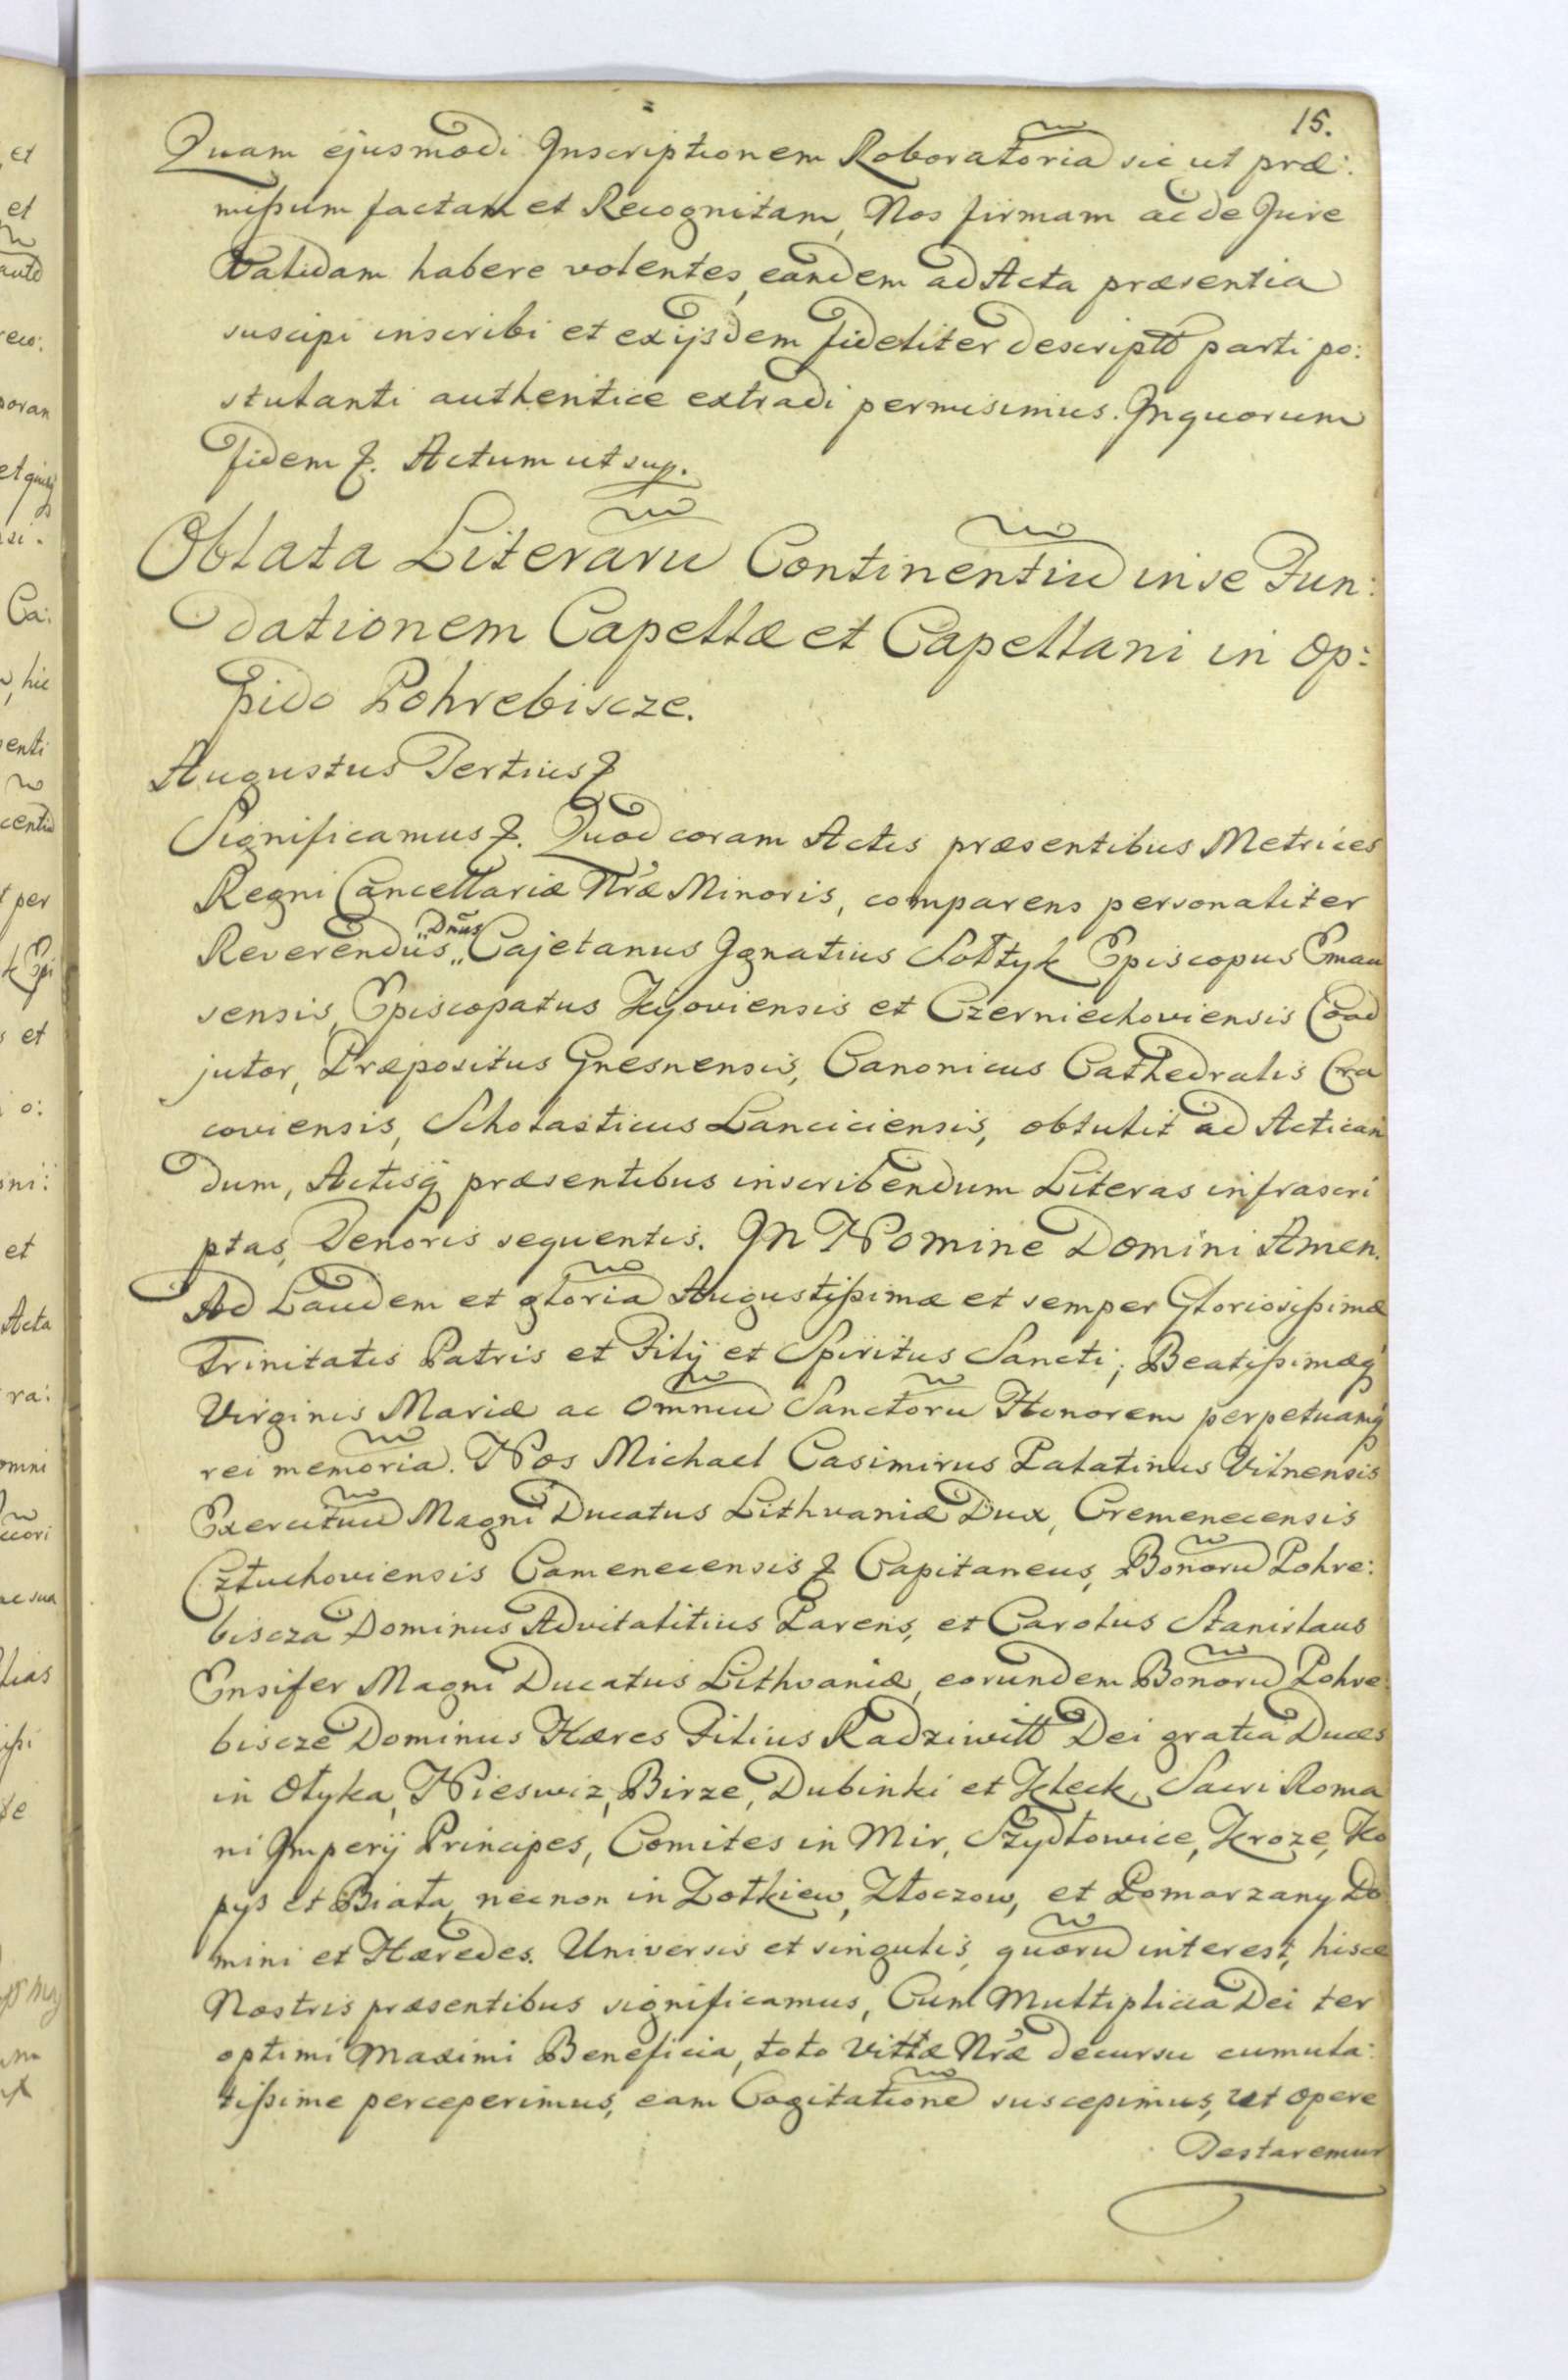 15.
Quam ejusmodi Inscriptionem Roboratoria͞ sic ut præ:
mißum factam et Recognitam, Nos firmam ac de Jure
Validam habere volentes, eandem ad Acta præsentia
suscipi inscribi et ex ijsdem fideliter descript͞ parti po:
stulanti authentice extradi permisimus. In quorum
fidem &. Actum ut sup.
Oblata Literaru͞ Continentiu͞ in se Fun:
dationem Capellæ et Capellani in Op:
pido Pohrebiscze.
Augustus Tertius &
Significamus &. Quod coram Actis præsentibus Metrices
Regni Cancellariæ Nr̃æ Minoris, comparens personaliter
Reverendus „Dnũs„ Cajetanus Ignatius Sołtyk Episcopus Emau
sensis, Episcopatus Kijoviensis et Czerniechoviensis Coad
jutor, Præpositus Gnesnensis, Canonicus Cathedralis Cra
coviensis, Scholasticus Lanciciensis, obtulit ad Actican
dum, Actisq́ præsentibus inscribendum Literas infrascri
ptas, Tenoris sequentis. In Nomine Domini Amen.
Ad Laudem et gloria͞ Augustißimæ et semper Gloriosißimæ
Trinitatis Patris et Filij et Spiritus Sancti; Beatißimæq́
Virginis Mariæ ac Omniu͞ Sanctoru͞ Honorem perpetuamq́
rei memoria͞. Nos Michael Casimirus Palatinus Vilnensis
Exercituu͞ Magni Ducatus Lithvaniæ Dux, Cremenecensis
Człuchoviensis Camenecensis & Capitaneus, Bonoru͞ Pohre:
biscza Dominus Advitalitius Parens, et Carolus Stanislaus
Ensifer Magni Ducatus Lithvaniæ, eorundem Bonoru͞ Pohre:
biscze Dominus Hæres Filius Radziwiłł Dei gratia Duces
in Ołyka, Nieswiz, Birze, Dubinki et Kleck, Sacri Roma
ni Imperij Principes, Comites in Mir, Szydłowice, Kroze, Ko
pys et Biała, necnon in Zołkiew, Złoczow, et Pomarzany Do
mini et Hæredes. Universis et singulis, quoru͞ interest, hisce
Nostris præsentibus significamus, Cum Multiplicia Dei ter
optimi Maximi Beneficia, toto Vittæ Nr̃æ decursu cumula:
tißime perceperimus, eam Cogitatione͞ suscepimus, ut Opere
Testaremur